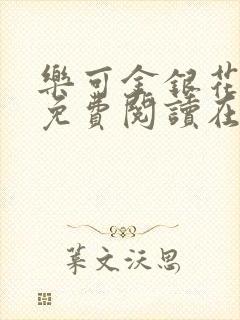 樂可金銀花
免費閱讀在
葉文沃思